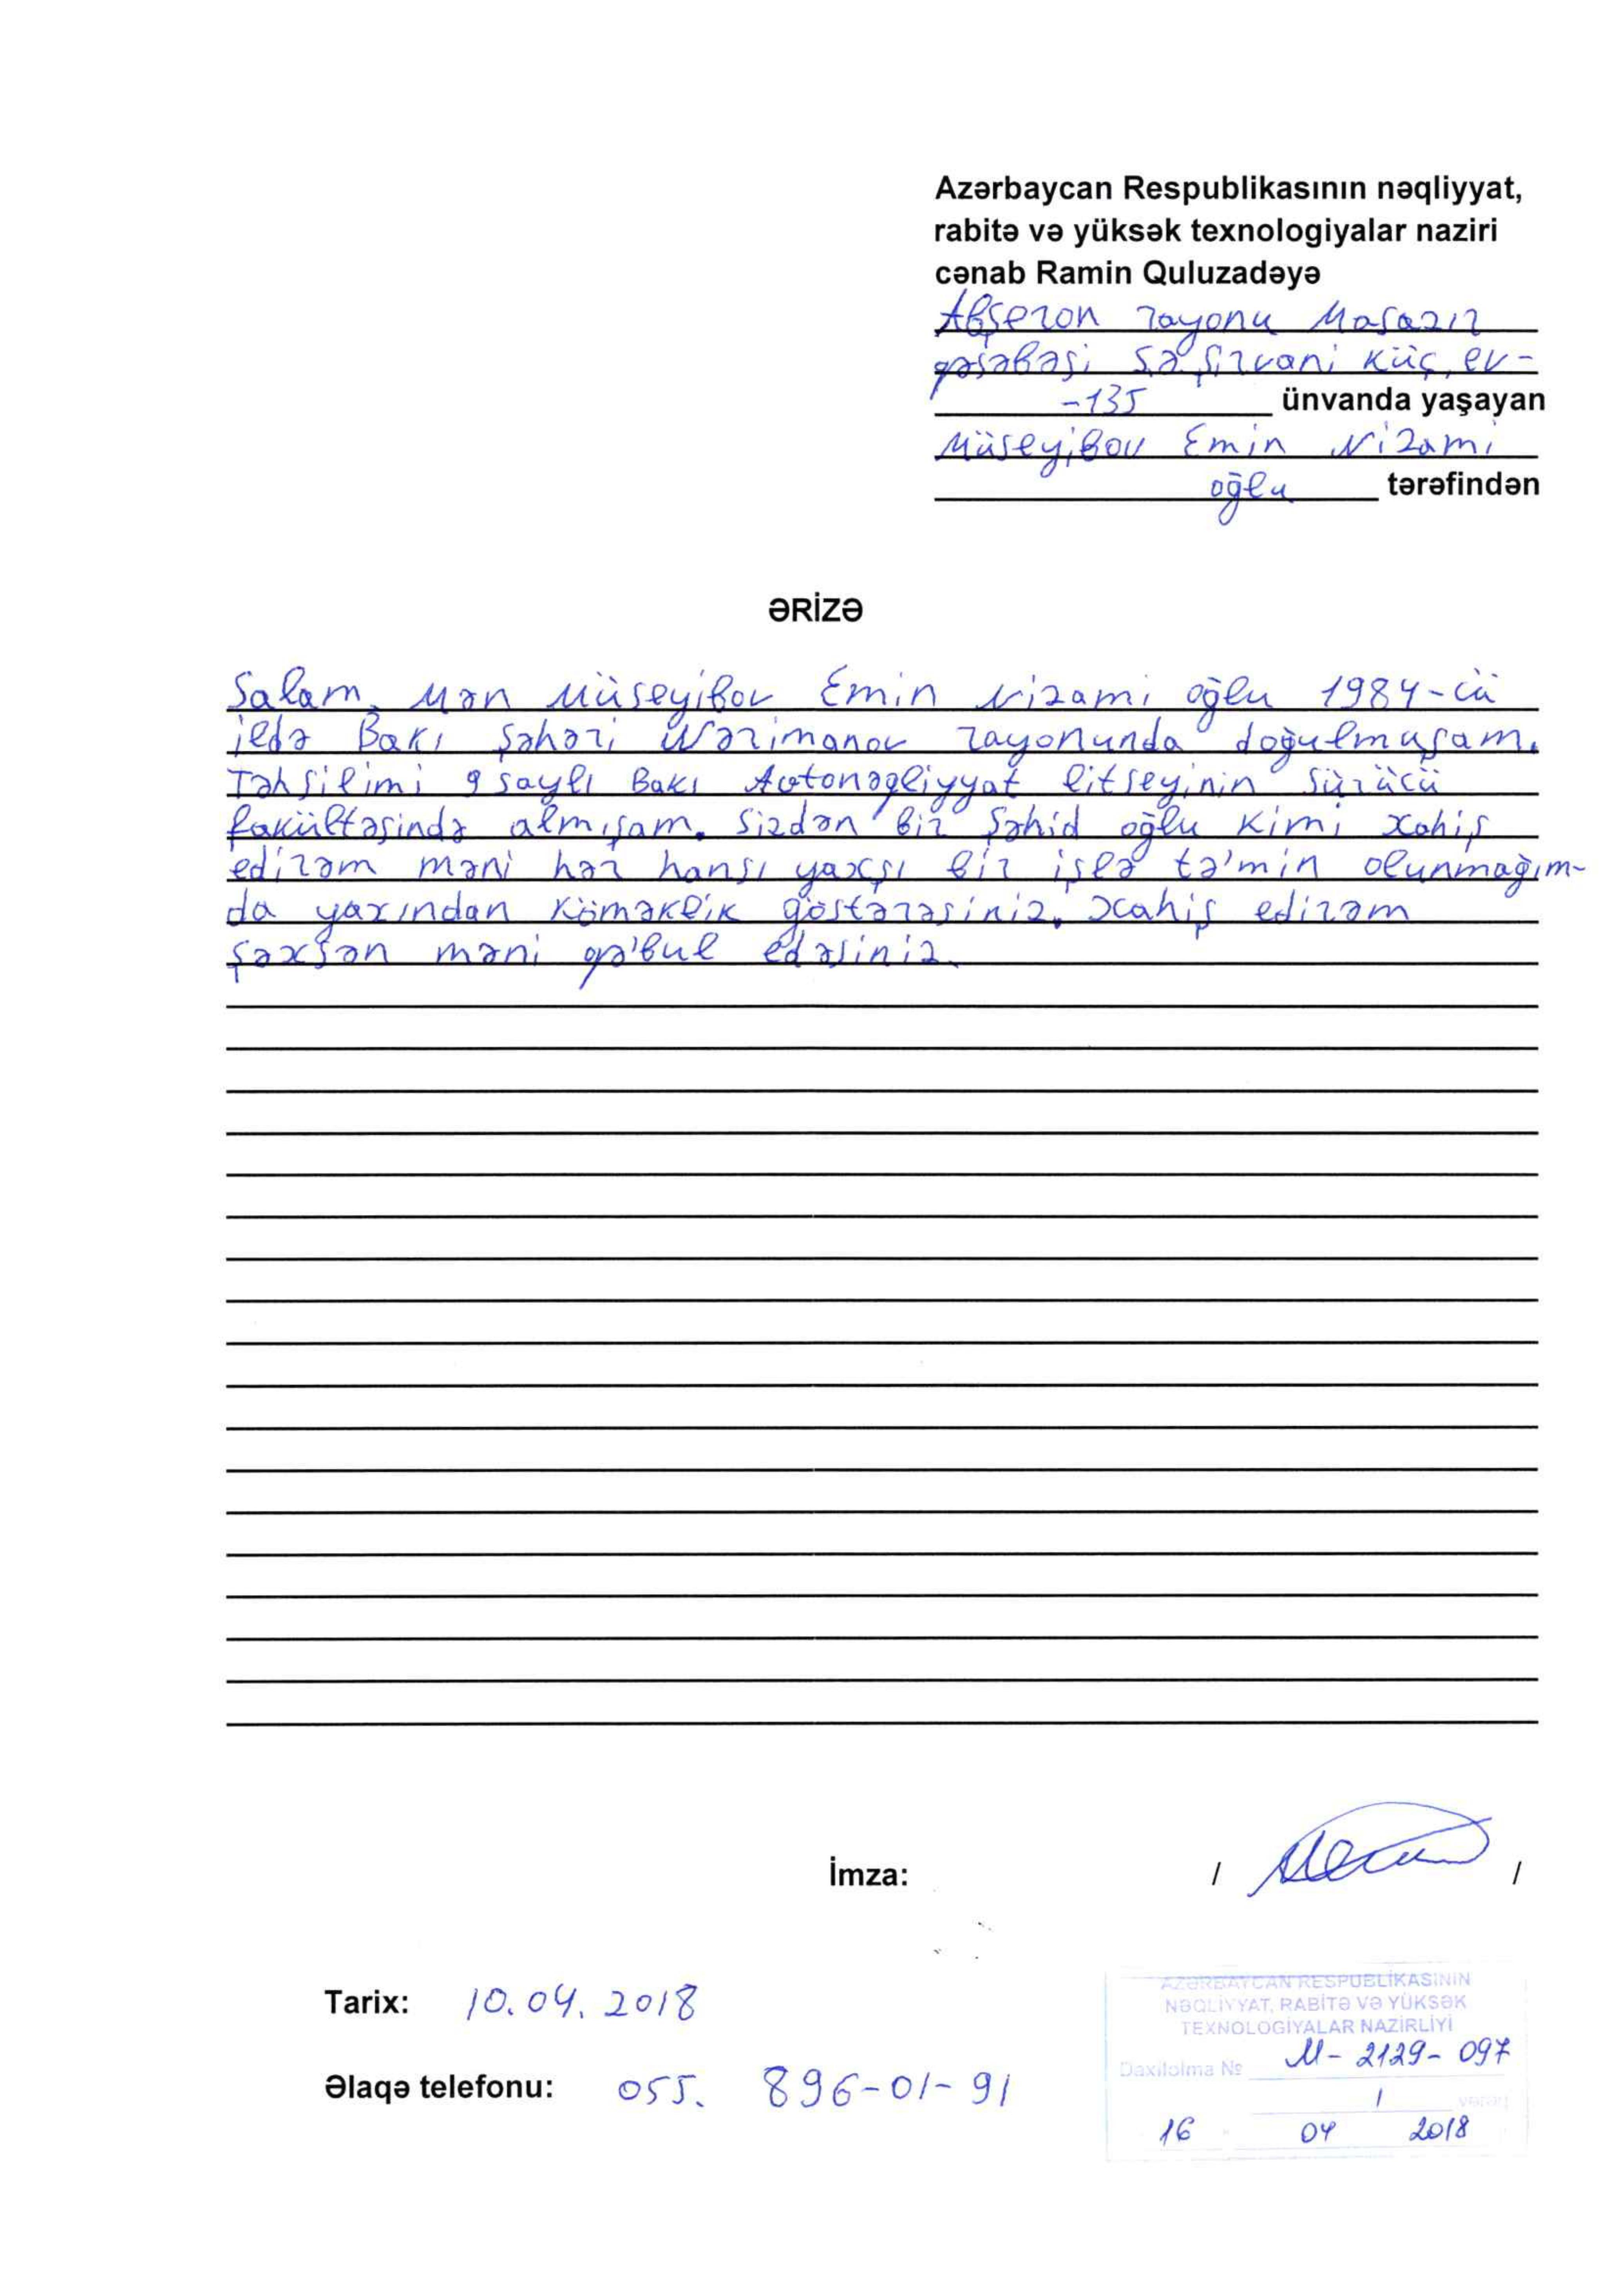 Azərbaycan Respublikasının nəqliyyat,
rabitə və yüksək texnologiyalar naziri
cənab Ramin Quluzadəyə
Abşeron rayonu Masazır
qəsəbəsi S.Ə Şirvani küç, ev-
-135 ünvanda yaşayan
Müseyibov Emin Nizami
oğlu tərəfindən
ƏRİZƏ
Salam, Mən Müseyibov Emin Nizami oğlu 1984-cü
ildə Bakı şəhəri Nərimanov rayonunda doğulmuşam.
Təhsilimi 9 saylı Bakı Avtonəqliyyat litseyinin sürücü
fakültəsində almışam. Sizdən bir Şəhid oğlu kimi xahiş
edirəm məni hər hansı yaxşı bir işlə tə'min olunmağım-
da yaxından köməklik göstərəsiniz. Xahiş edirəm
şəxsən məni qə'bul edəsiniz.
İmza: / /
Tarix: 10.04.2018
Əlaqə telefonu: 055. 896-01-91
AZƏRBAYCAN RESPUBLİKASININ
NƏQLİYYAT, RABİTƏ VƏ YÜKSƏK
TEXNOLOGİYALAR NAZİRLİYİ
Daxilolma № M-2129-097
1 vərəq
16 04 2018